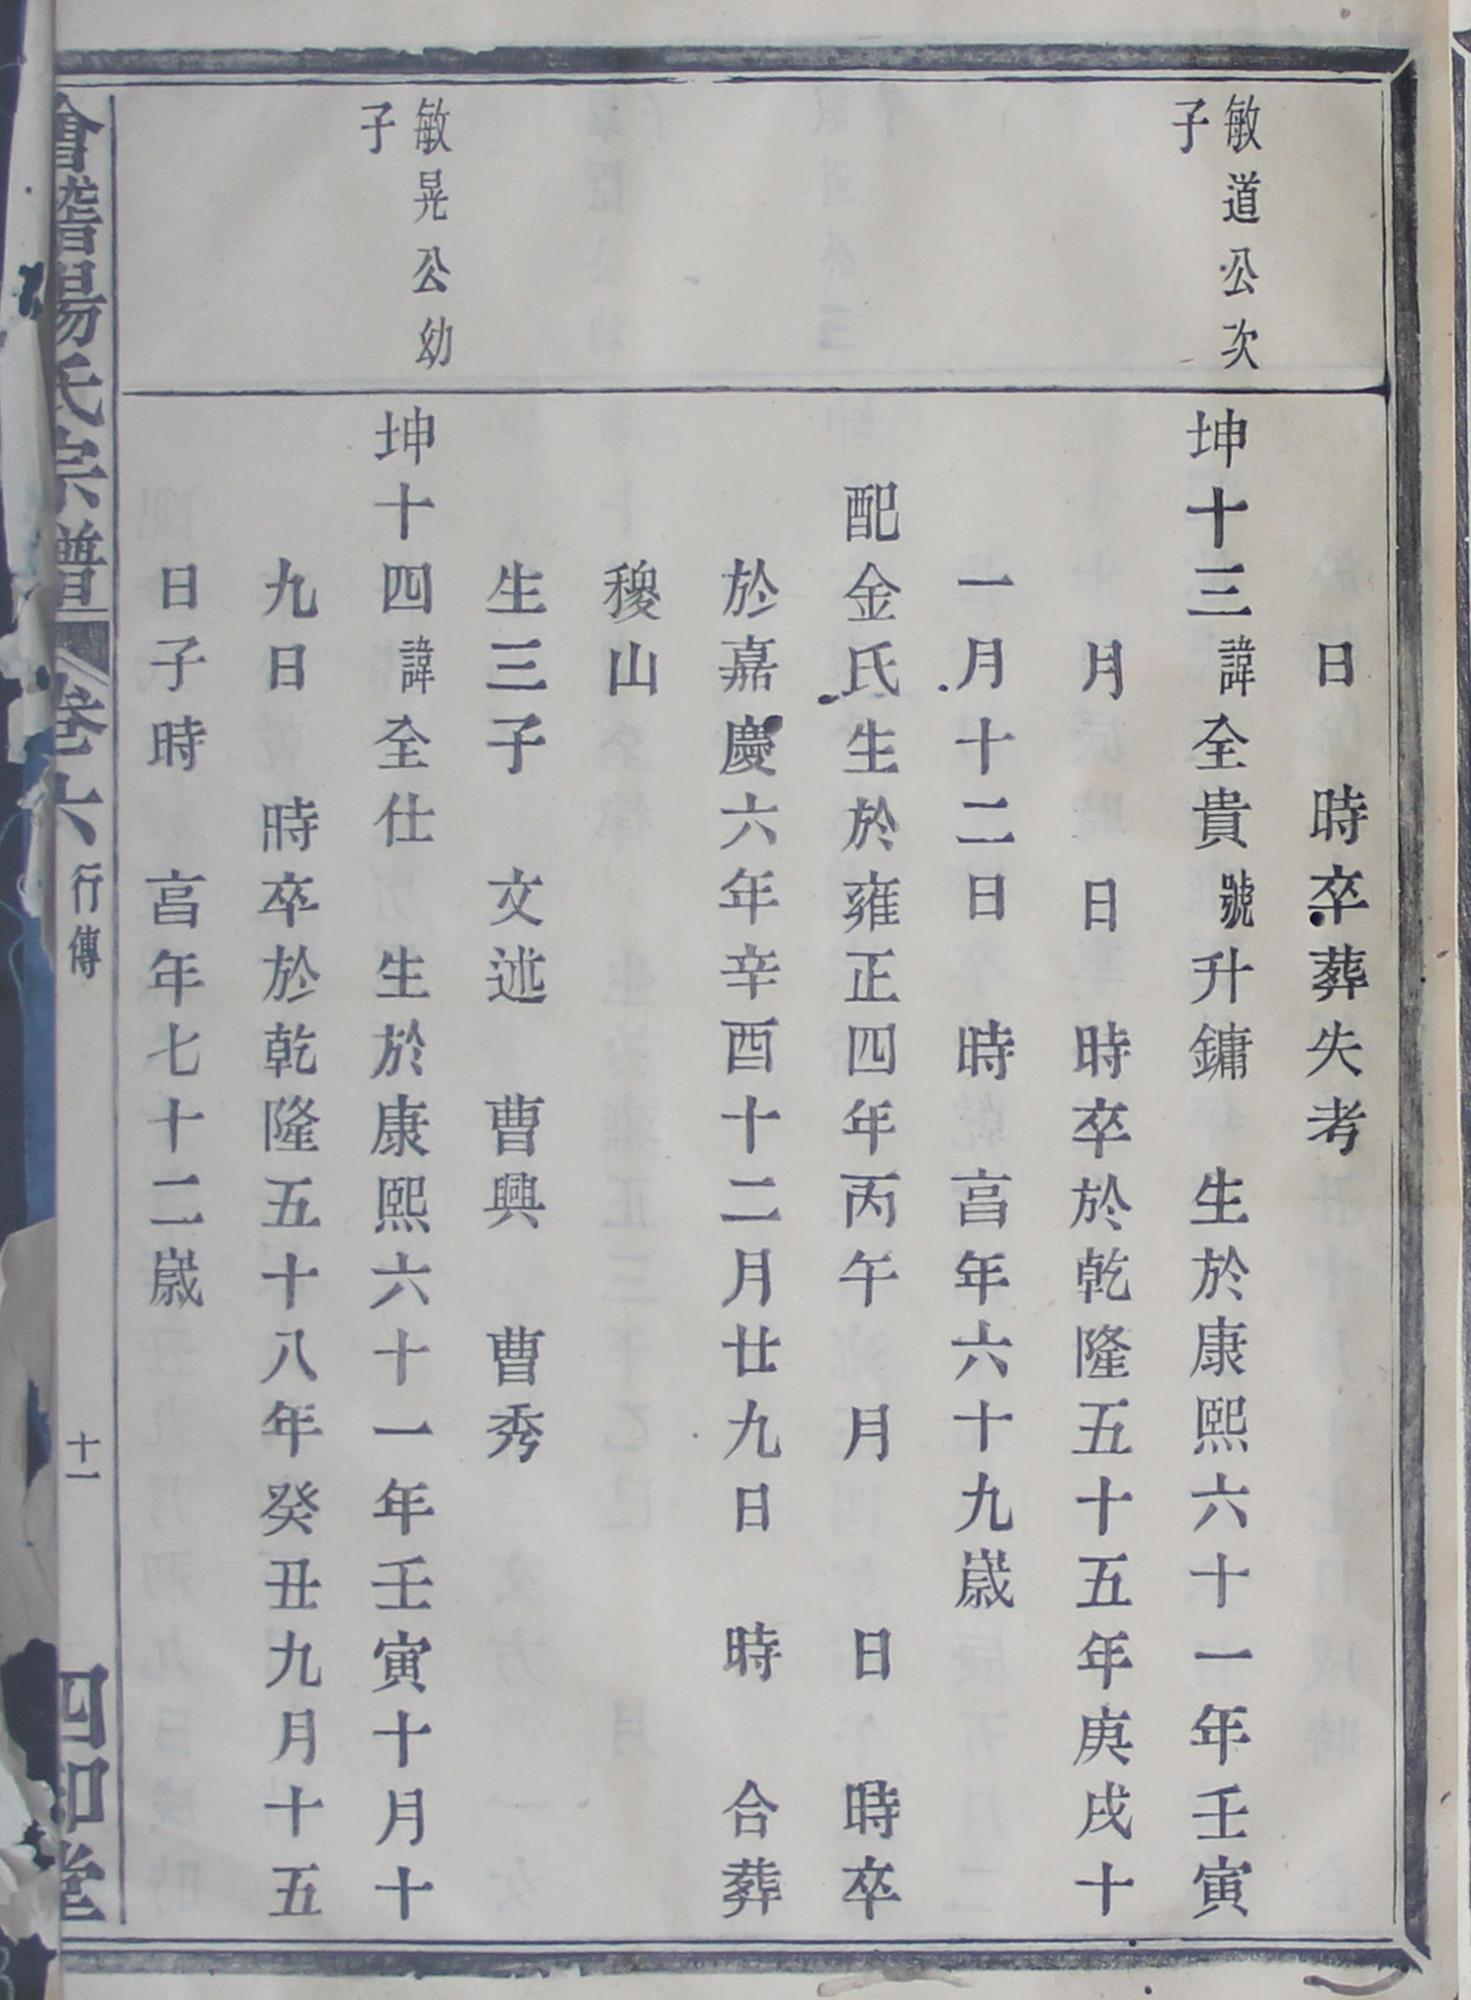 日　時卒葬失考
敏道公次
子
坤十三諱全貴號升鏞　生於康熙六十一年壬寅
月　　日　時卒於乾隆五十五年庚戌十
一月十二日　時　亯年六十九歲
配金氏生於雍正四年丙午　月　　日　時卒
於嘉慶六年辛酉十二月廿九日　時　合葬
稷山
生三子　文述　曹興　曹秀
敏晃公幼
子
坤十四諱全仕　生於康熙六十一年壬寅十月十
九日　時卒於乾隆五十八年癸丑九月十五
日子時　亯年七十二歲
會稽楊氏宗譜
卷六　行傳
十一
四知堂